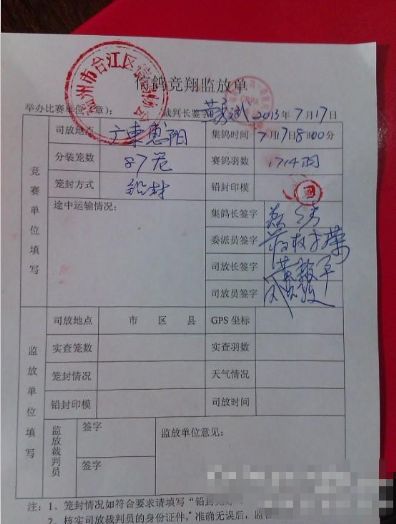 信鸽竞翔监放单
举办比赛单位(章): 裁判长签 2013年7月17日
竞赛单位填写
司放地点 广东惠阳 集鸽时间 7月17日8时00分
分装笼数 87笼 赛鸽羽数 1714羽
笼封方式 铅封 铅封印模
途中运输情况: 集鸽长签字
委派员签字
司放长签字
司放员签字
监放单位填写
司放地点 市 区 县 GPS坐标
实查笼数 实查羽数
笼封情况 天气情况
铅封印模 司放时间
监放裁判员 签字 监放单位意见:
签字
注: 1、笼封情况如符合要求请填写“铅封
2、核实司放裁判员的身份证件,准确无误后,